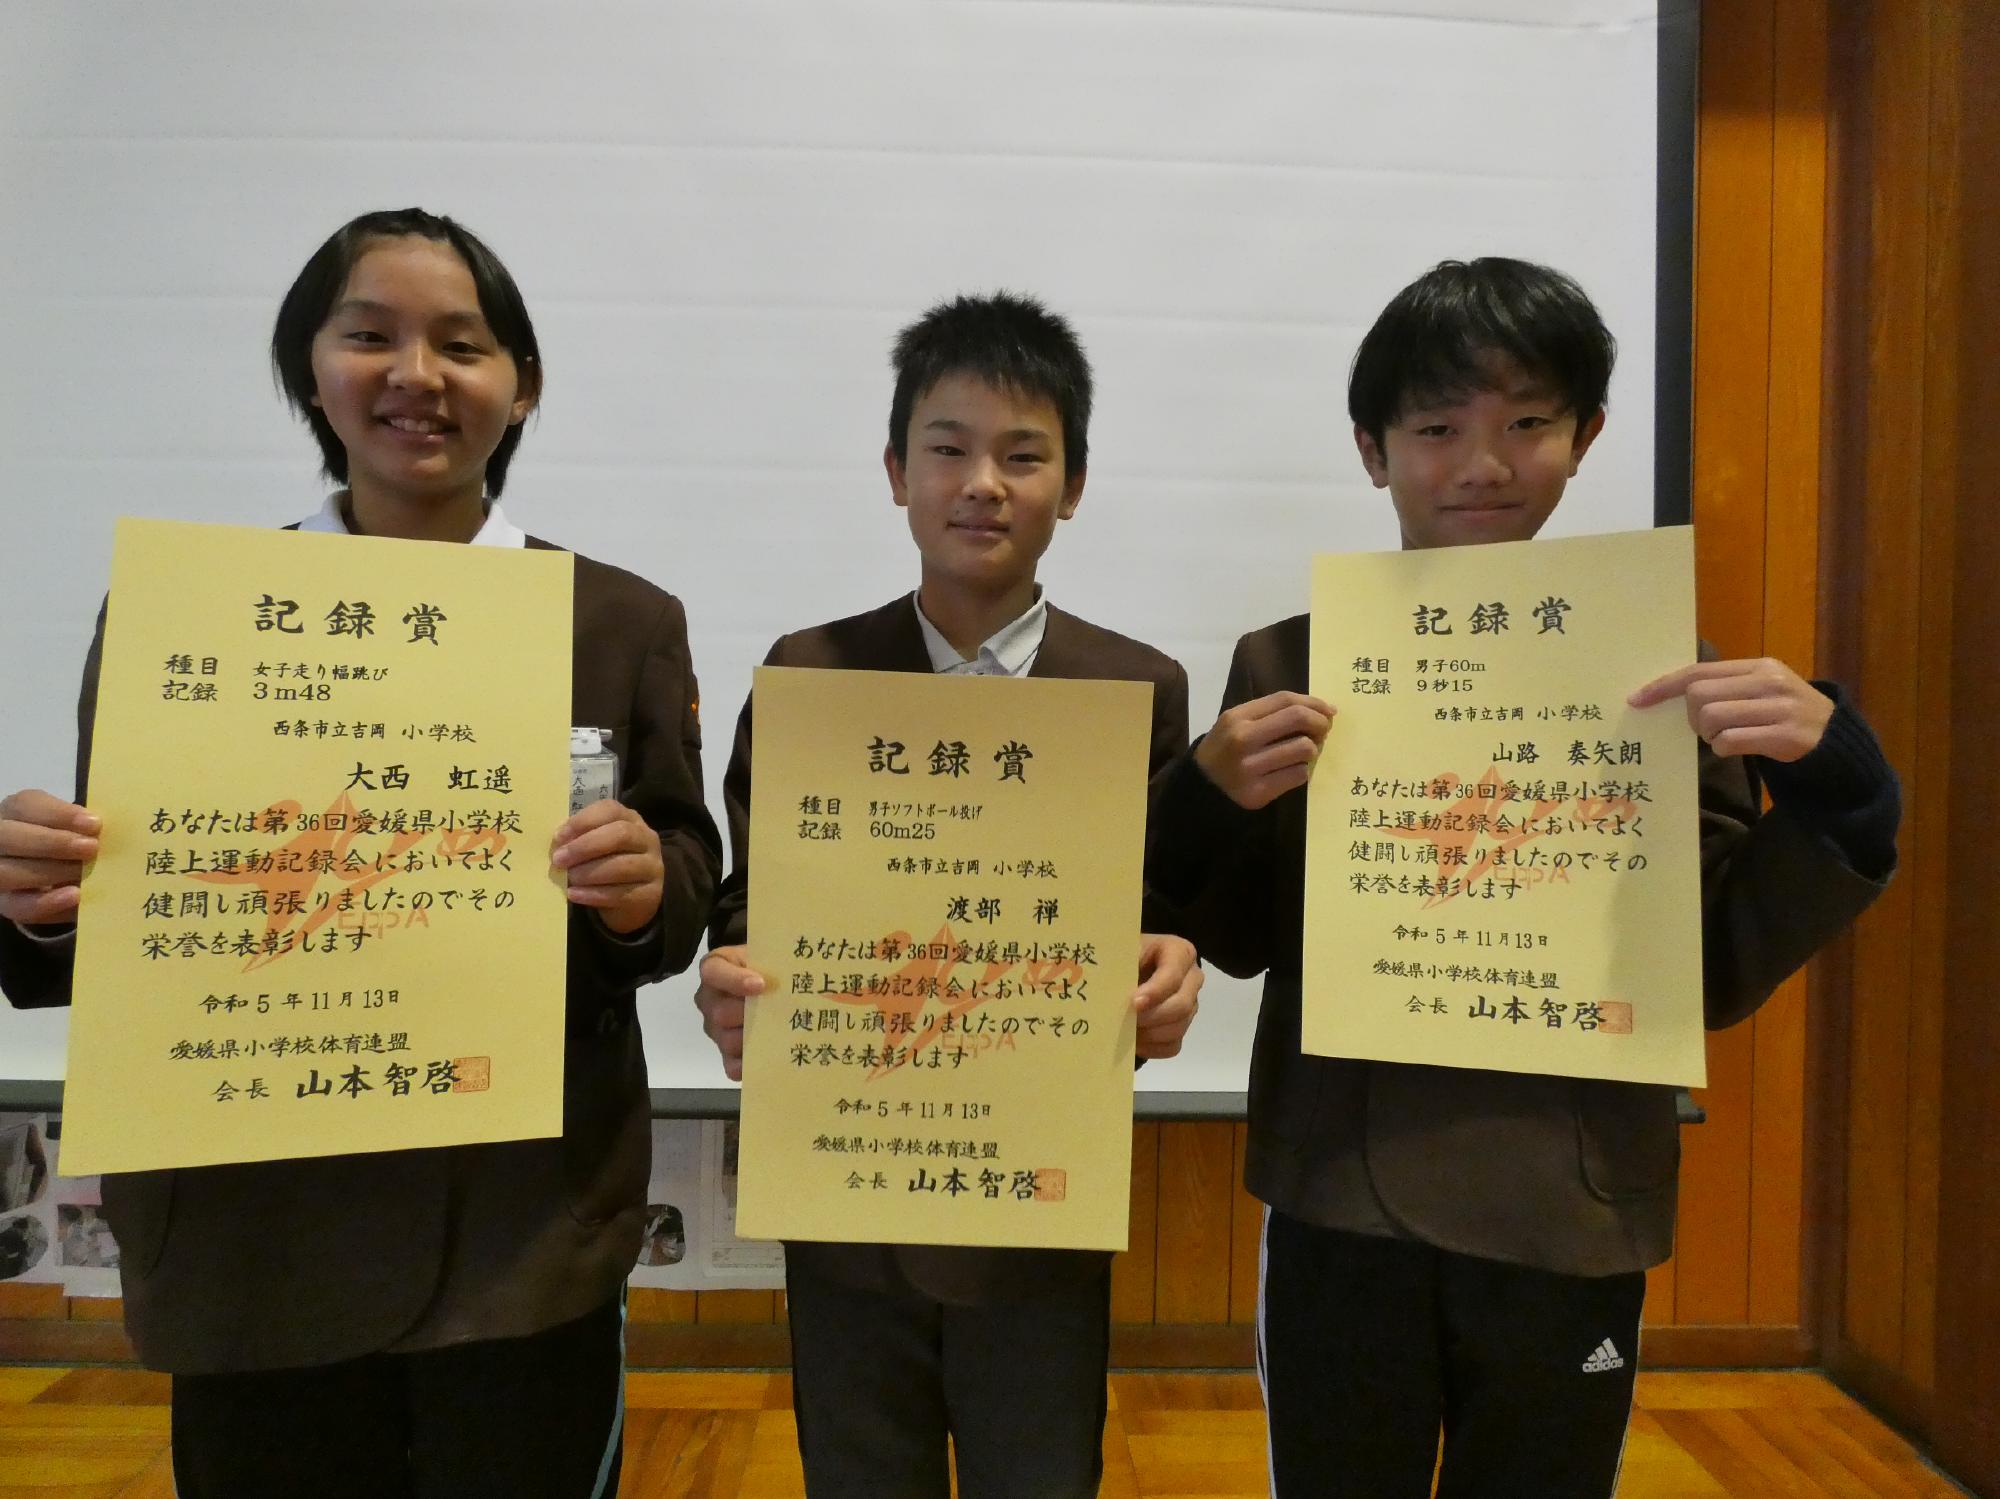 記録賞
種目 女子走り幅跳び
記録 3m48
西条市立吉岡 小学校
大西 虹遥
あなたは第36回愛媛県小学校
陸上運動記録会においてよく
健闘し頑張りましたのでその
栄誉を表彰します
令和5年11月13日
愛媛県小学校体育連盟
会長 山本智啓
記録賞
種目 男子ソフトボール投げ
記録 60m25
西条市立吉岡 小学校
渡部 禅
あなたは第36回愛媛県小学校
陸上運動記録会においてよく
健闘し頑張りましたのでその
栄誉を表彰します
令和5年11月13日
愛媛県小学校体育連盟
会長 山本智啓
記録賞
種目 男子60m
記録 9秒15
西条市立吉岡 小学校
山路 奏矢朗
あなたは第36回愛媛県小学校
陸上運動記録会においてよく
健闘し頑張りましたのでその
栄誉を表彰します
令和5年11月13日
愛媛県小学校体育連盟
会長 山本智啓
adidas